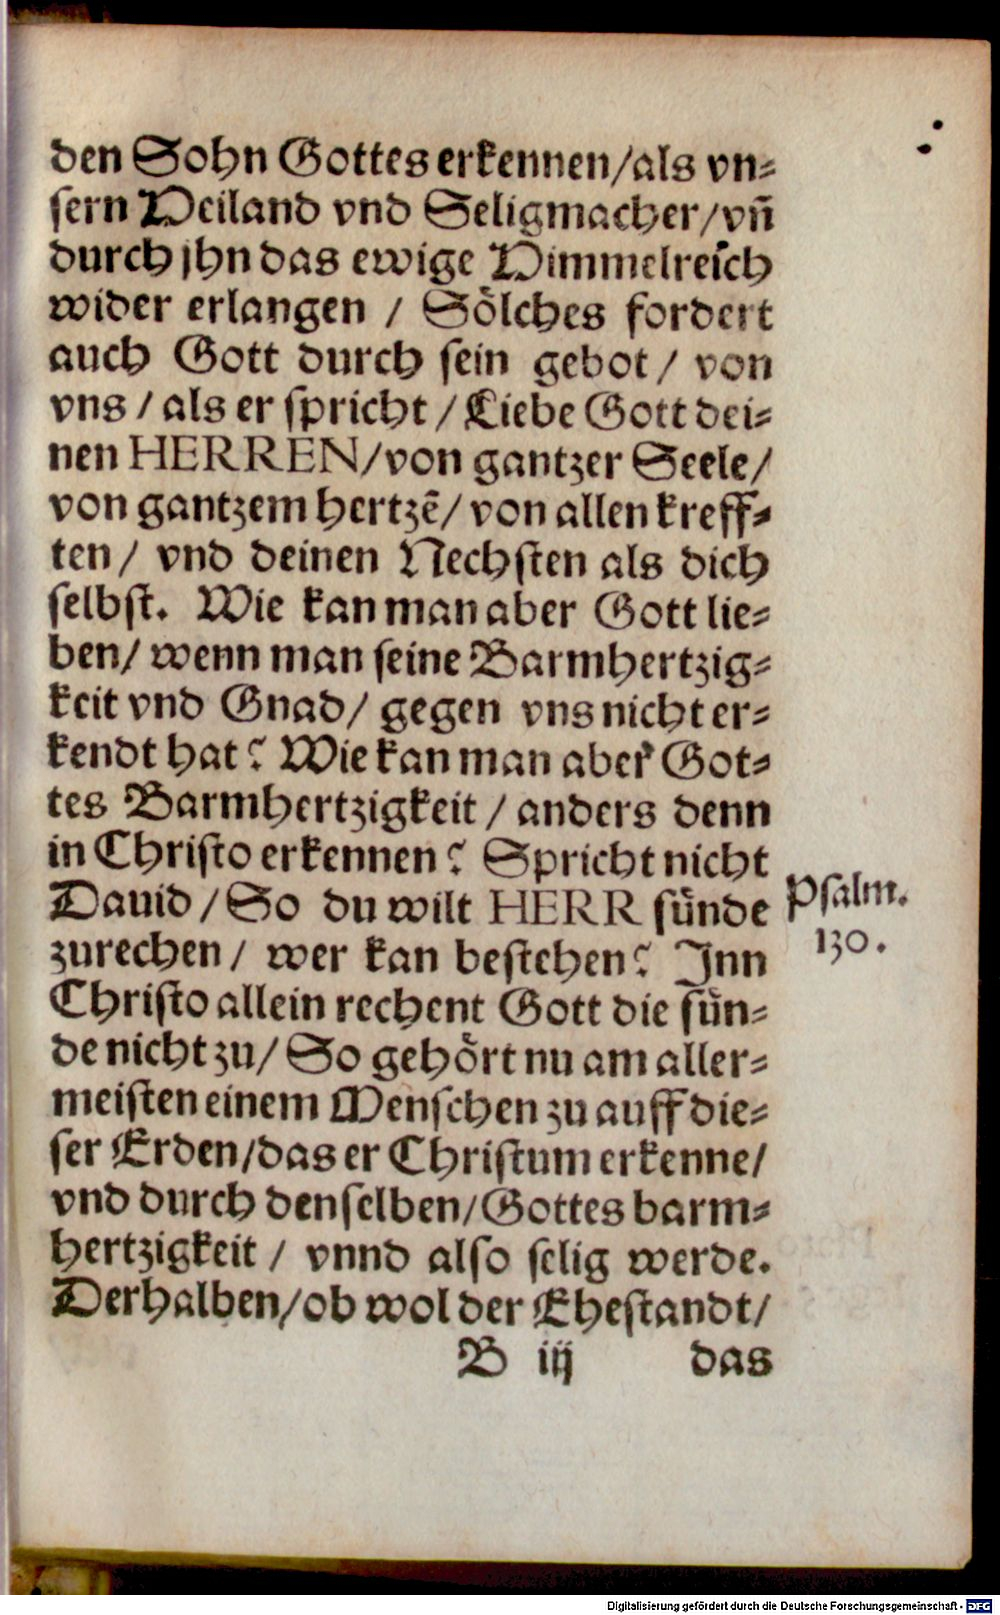 den Sohn Gottes erkennen/als vn⸗
sern Heiland vnd Seligmacher/vn̄
durch jhn das ewige Himmelreich
wider erlangen / Sölches fordert
auch Gott durch sein gebot / von
vns / als er spricht / Liebe Gott dei⸗
nen HERREN/von gantzer Seele/
von gantzem hertzē/ von allen kreff⸗
ten / vnd deinen Nechsten als dich
selbst. Wie kan man aber Gott lie⸗
ben/ wenn man seine Barmhertzig⸗
keit vnd Gnad/ gegen vns nicht er⸗
kendt hat? Wie kan man aber Got⸗
tes Barmhertzigkeit / anders denn
in Christo erkennen? Spricht nicht
Dauid / So du wilt HERR sünde
zurechen / wer kan bestehen? Inn
Christo allein rechent Gott die sün⸗
de nicht zu/ So gehört nu am aller⸗
meisten einem Menschen zu auff die⸗
ser Erden/das er Christum erkenne/
vnd durch denselben/Gottes barm⸗
hertzigkeit / vnnd also selig werde.
Derhalben/ob wol der Ehestandt/
B iij das
Psalm.
130.
Digitalisierung gefördert durch die Deutsche Forschungsgemeinschaft - DFG